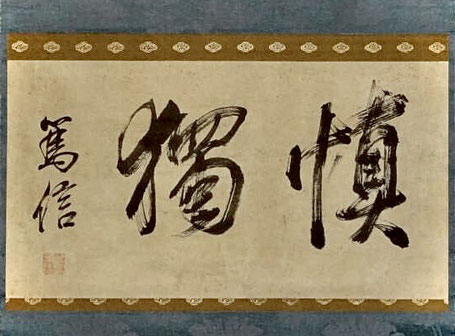 慎獨
篤信